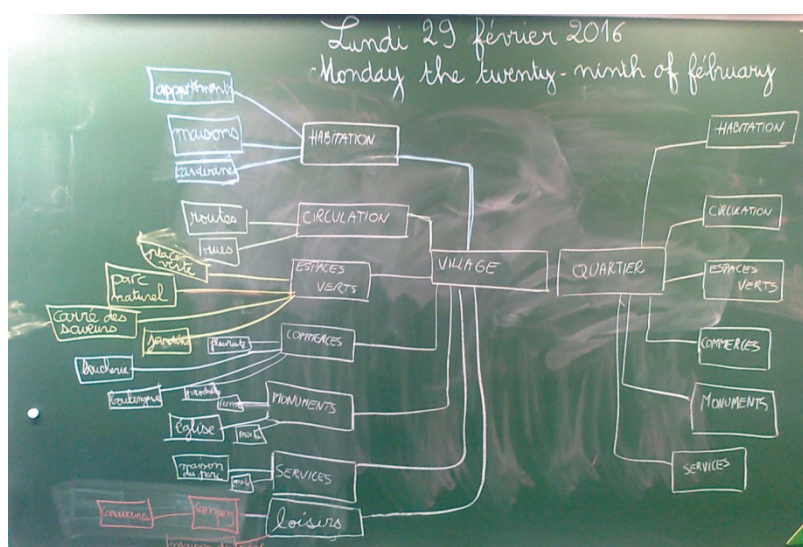 Lundi 29 février 2016
Monday the twenty-ninth of fébruary
appartements
maisons
HABITATION
routes
rues
CIRCULATION
place
verte
parc
naturel
Carré des
saveurs
jardins
ESPACES
VERTS
fleuriste
boucherie
boulangerie
COMMERCES
église
MONUMENTS
maison
du parc
SERVICES
camping
loisirs
VILLAGE
QUARTIER
HABITATION
CIRCULATION
ESPACES
VERTS
COMMERCES
MONUMENTS
SERVICES